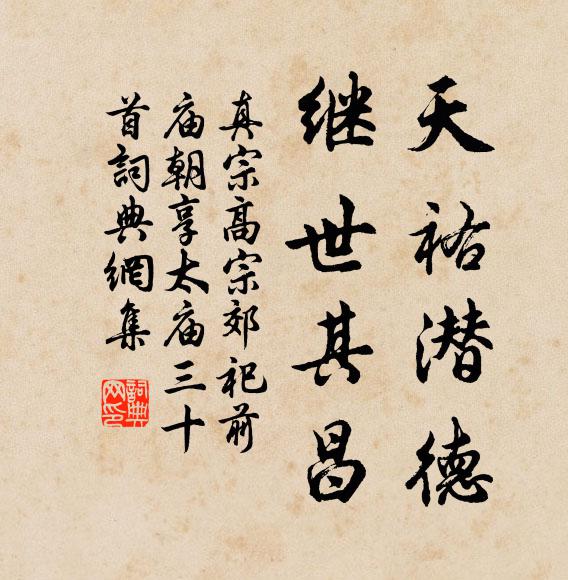 天祐潜德
继世其昌
真宗高宗郊祀前
庙朝享太庙三十
首詞典網集
詞典
网印